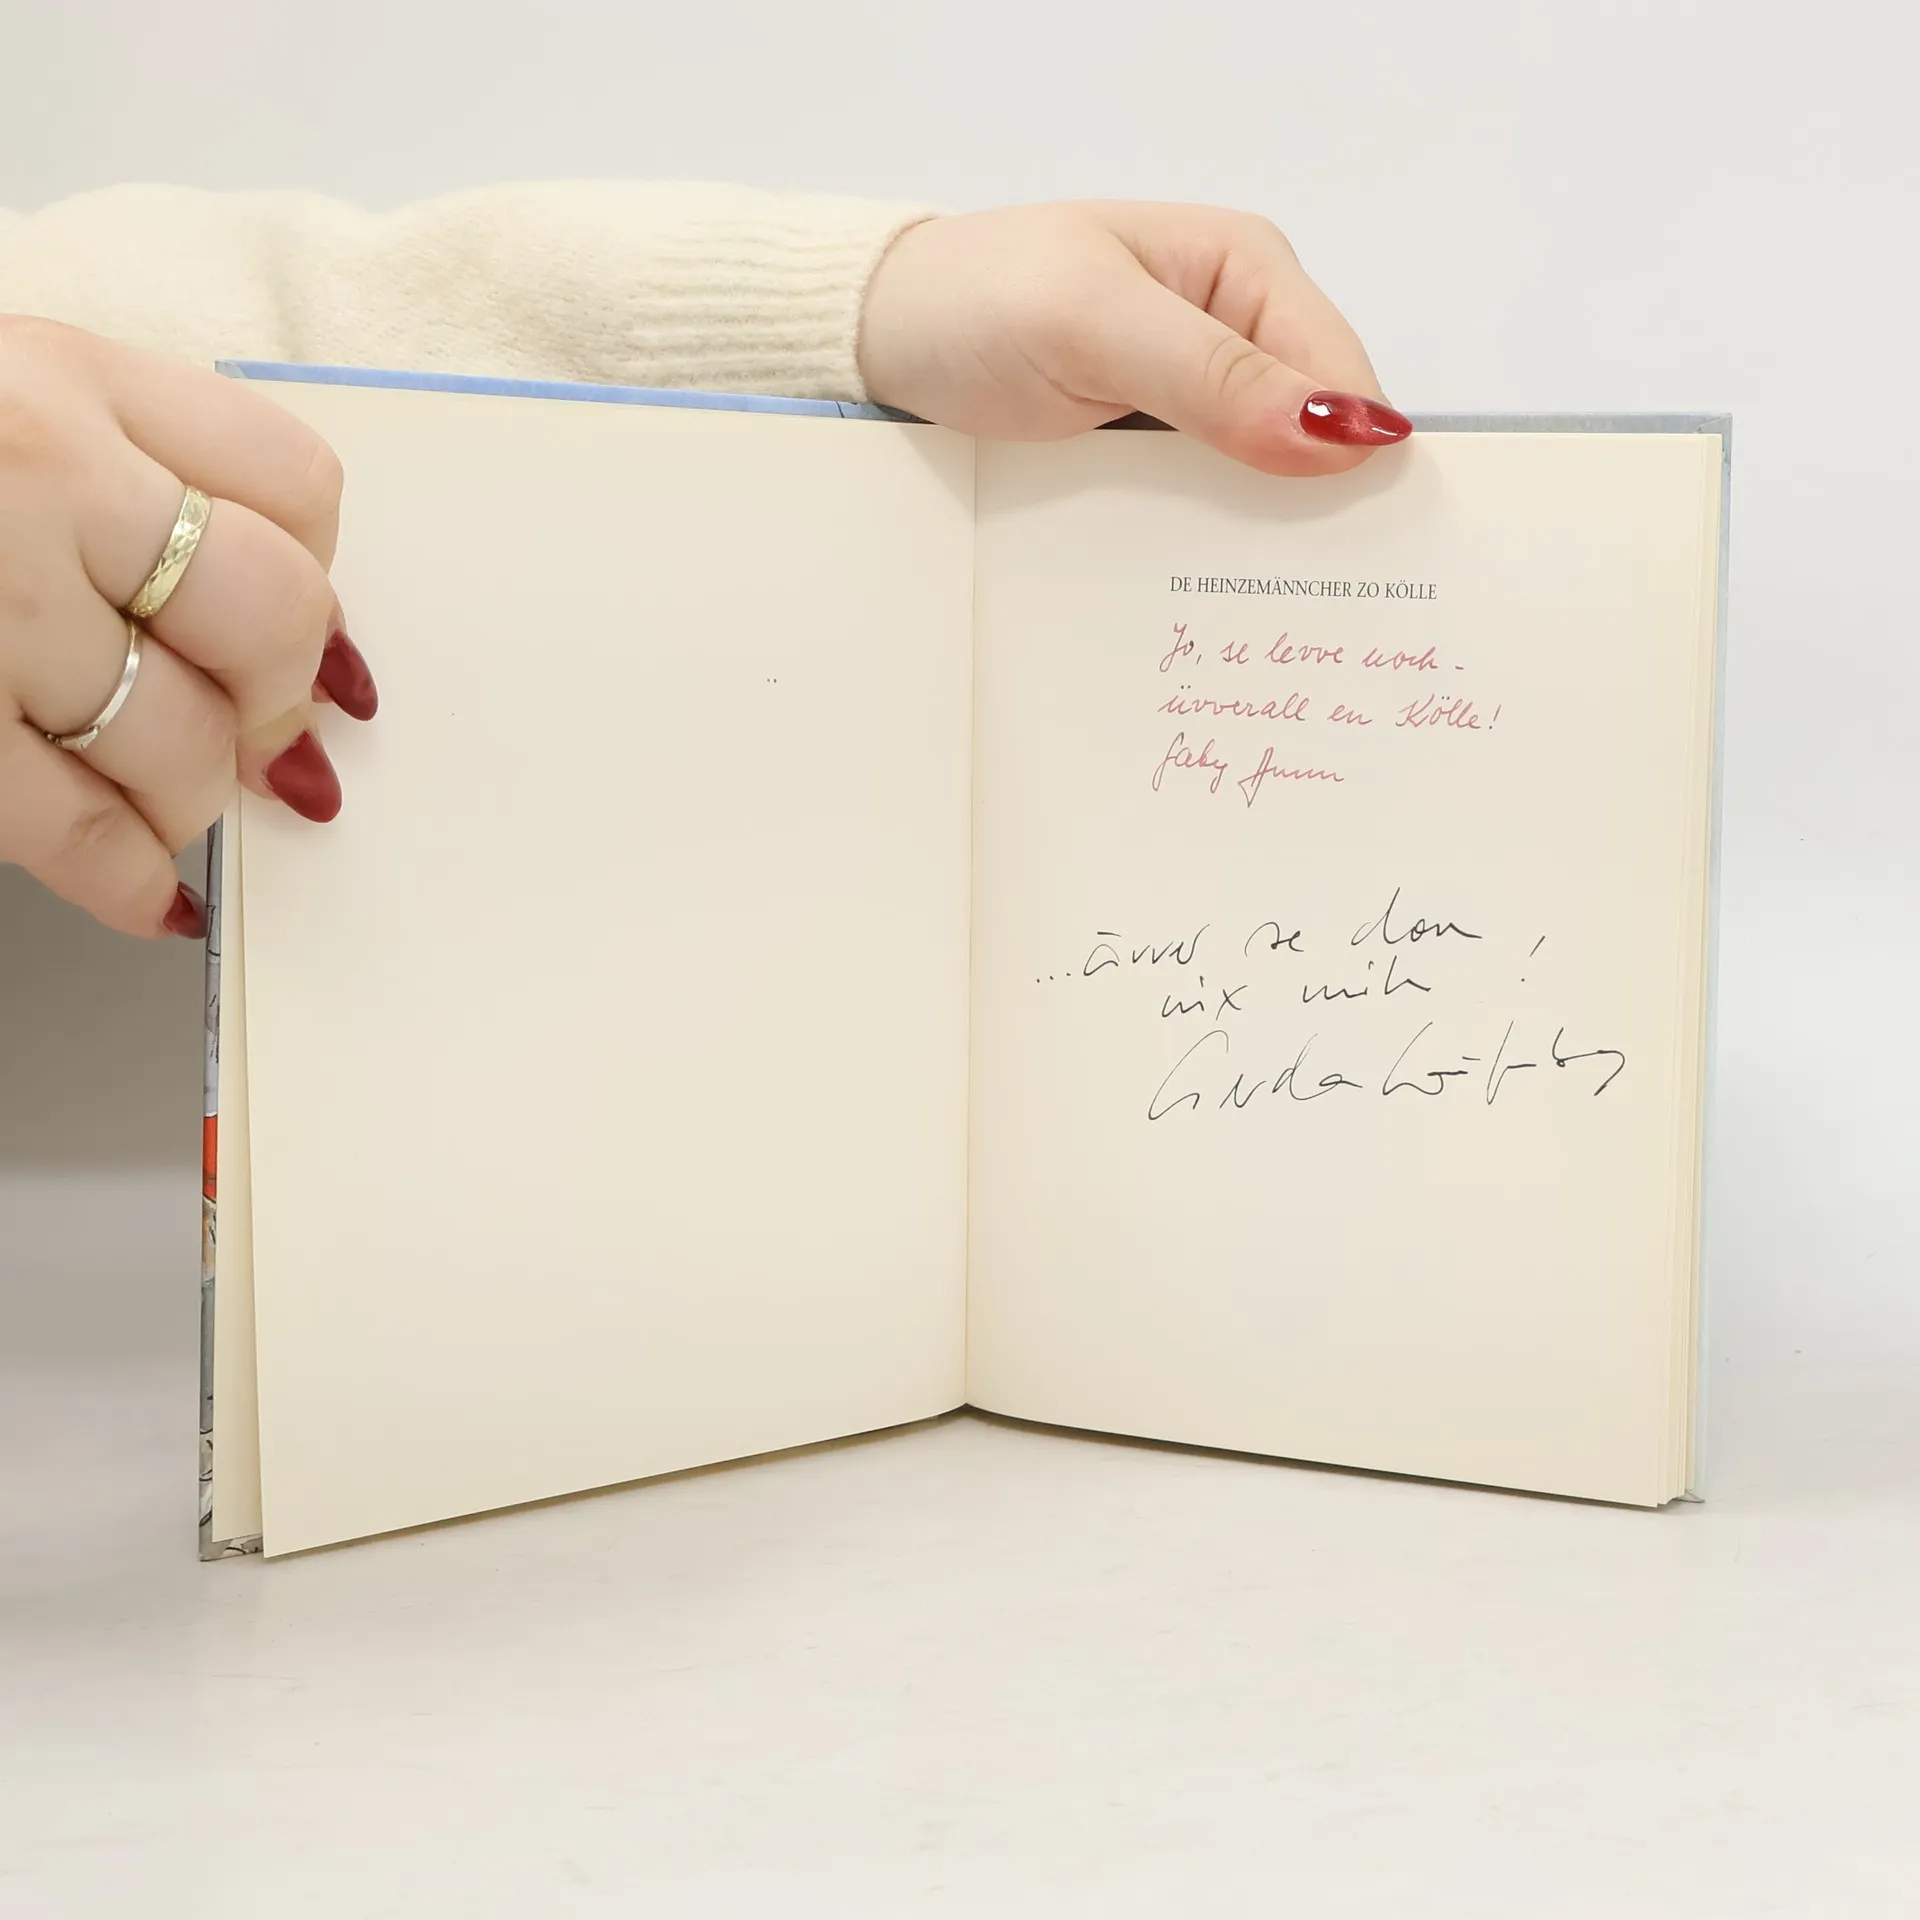 DE HEINZEMÄNNCHER ZO KÖLLE
Jo, se levve noch -
üvverall en Kölle!
Gaby Amm
... ävver se don
nix mih !
Gerda